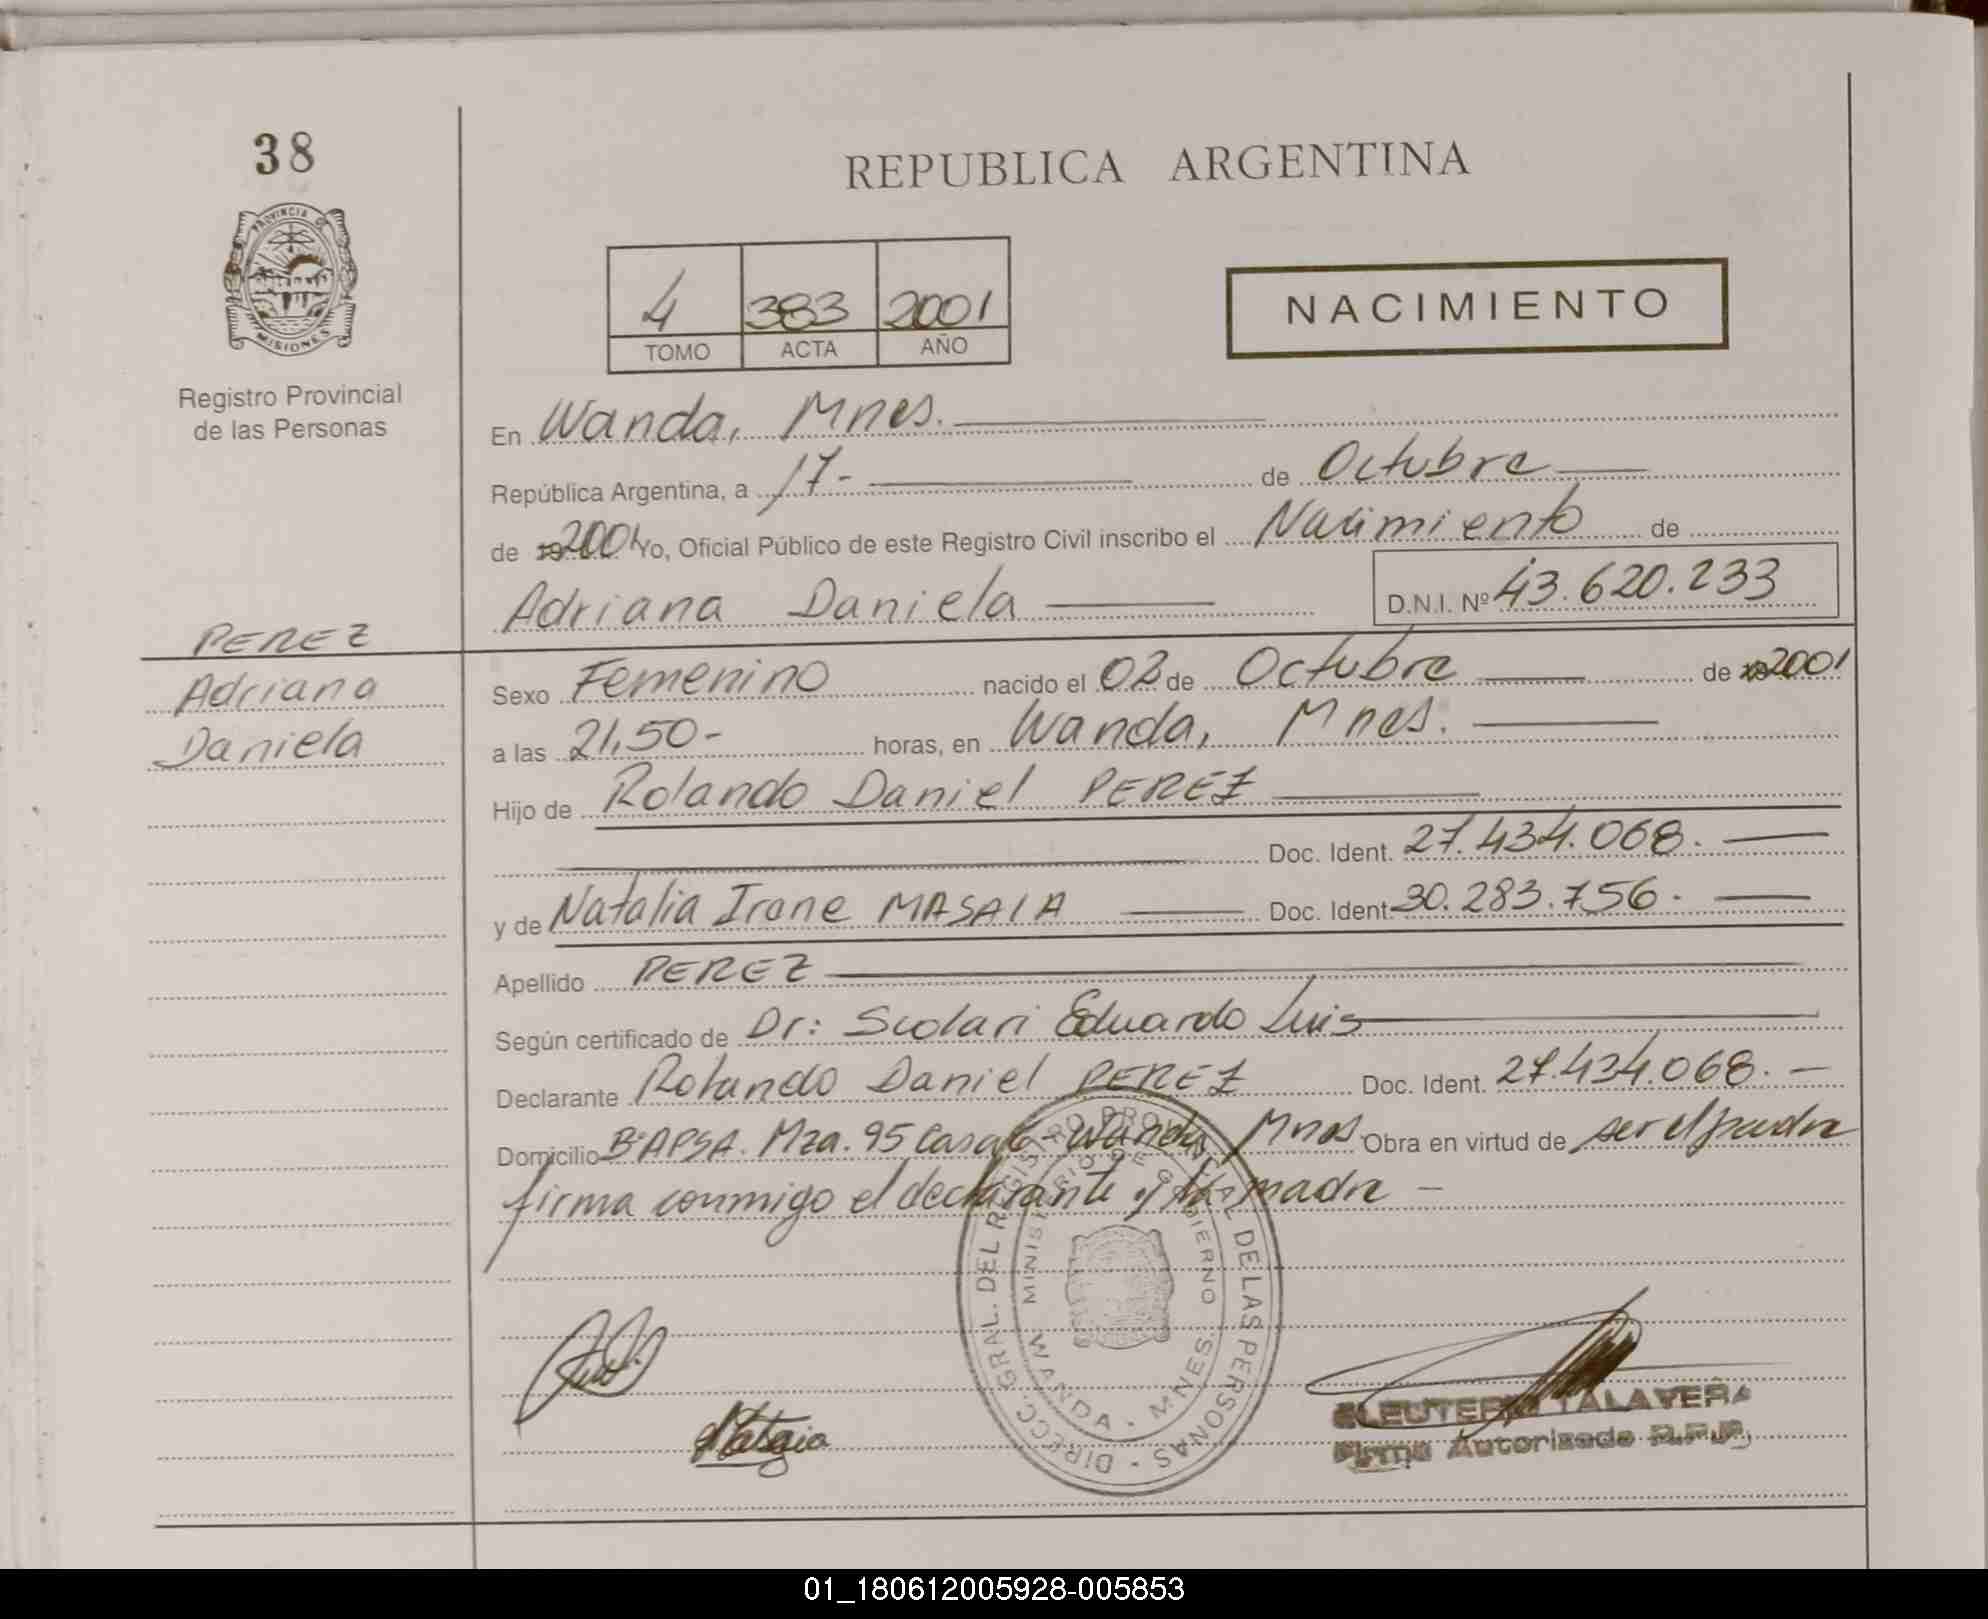 38
REPUBLICA ARGENTINA
PROVINCIA DE MISIONES
Registro Provincial
de las Personas
4 383 2001
TOMO ACTA AÑO
NACIMIENTO
En Wanda, Mnes.
República Argentina, a 17- de Octubre
de 2001 Yo, Oficial Público de este Registro Civil inscribo el Nacimiento de
Adriana Daniela D.N.I. Nº 43.620.233
PEREZ
Adriana
Daniela
Sexo Femenino nacido el 02 de Octubre de 2001
a las 21,50- horas, en Wanda, Mnes.
Hijo de Rolando Daniel PEREZ
Doc. Ident. 27.434.068.
y de Natalia Irene MASAIA Doc. Ident. 30.283.756.
Apellido PEREZ
Según certificado de Dr: Scolari Eduardo Luis
Declarante Rolando Daniel PEREZ Doc. Ident. 27.434.068.
Domicilio Bº APSA. Mza. 95 Casa - Wanda, Mnes. Obra en virtud de ser el padre
firma conmigo el declarante y la madre -
DIRECC. GRAL. DEL REGISTRO PROVINCIAL DE LAS PERSONAS
MINISTERIO DE GOBIERNO
WANDA - MNES.
ELEUTERIO TALAVERA
Firma Autorizada R.P.P.
01_180612005928-005853